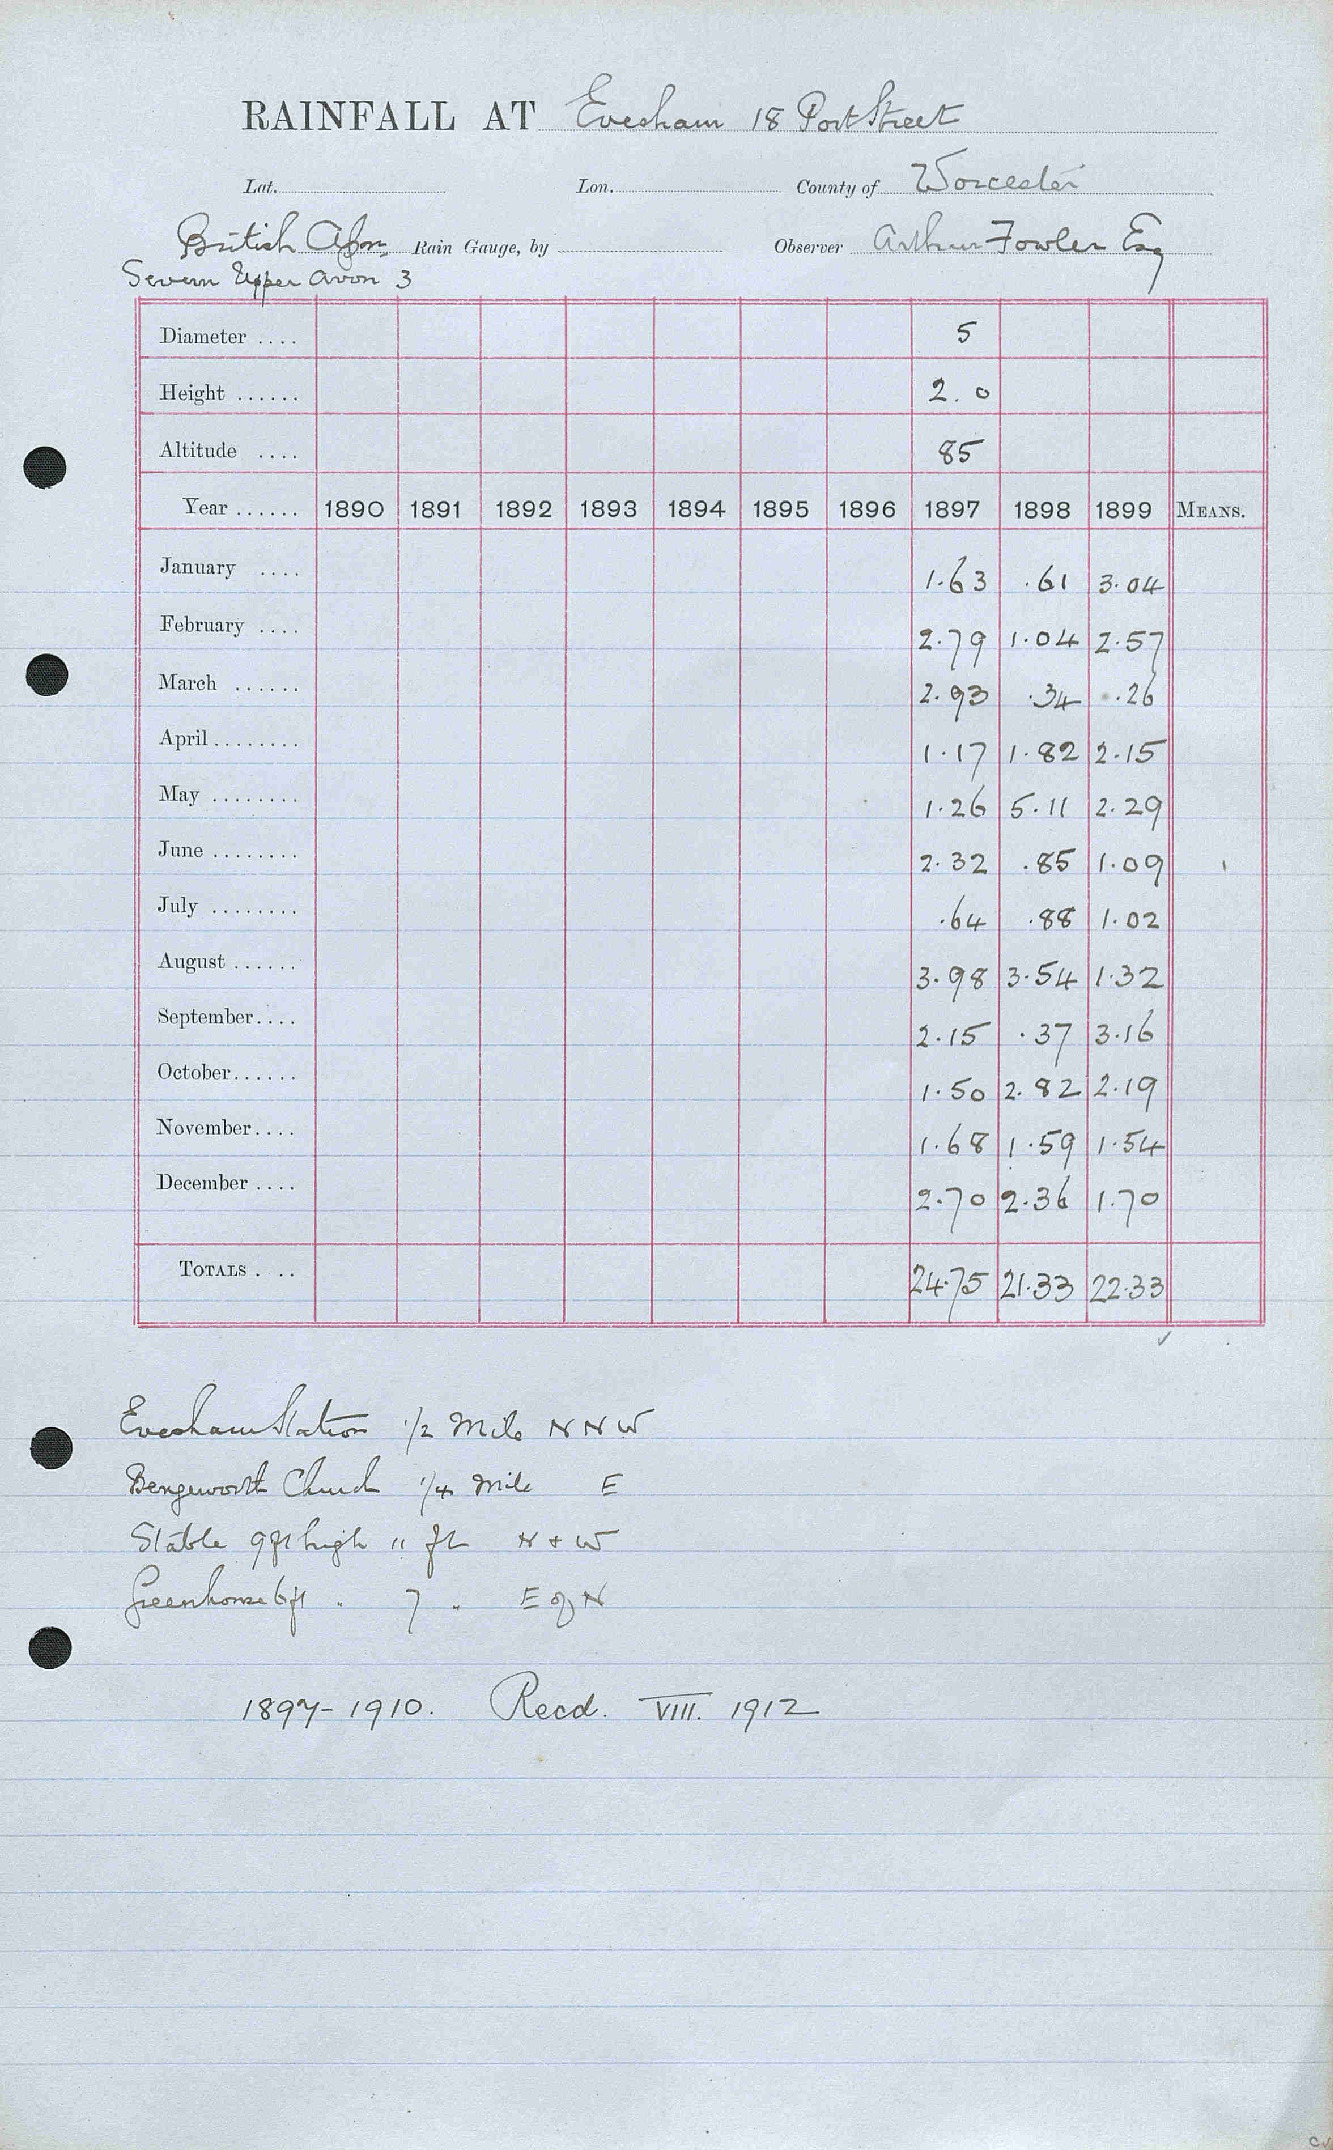 RAINFALL AT Evesham 18 Port Street
Lat. Lon. County of Worcester
British Assn. Rain Gauge, by Observer Arthur Fowler Esq
Severn Upper Avon 3
Diameter .... 5
Height ...... 2. 0
Altitude .... 85
Year ...... 1890 1891 1892 1893 1894 1895 1896 1897 1898 1899 MEANS.
January .... 1.63 .61 3.04
February .... 2.79 1.04 2.57
March ...... 2.93 .34 .26
April ........ 1.17 1.82 2.15
May ........ 1.26 5.11 2.29
June ........ 2.32 .85 1.09
July ........ .64 .88 1.02
August ...... 3.98 3.54 1.32
September .... 2.15 .37 3.16
October ...... 1.50 2.82 2.19
November .... 1.68 1.59 1.54
December .... 2.70 2.36 1.70
TOTALS . .. 24.75 21.33 22.33
Evesham Station 1/2 Mile N N W
Bengeworth Church 1/4 Mile E
Stable 9ft high 11 ft N + W
Greenhouse 6ft " 7 " E of N
1897-1910. Recd. VIII. 1912